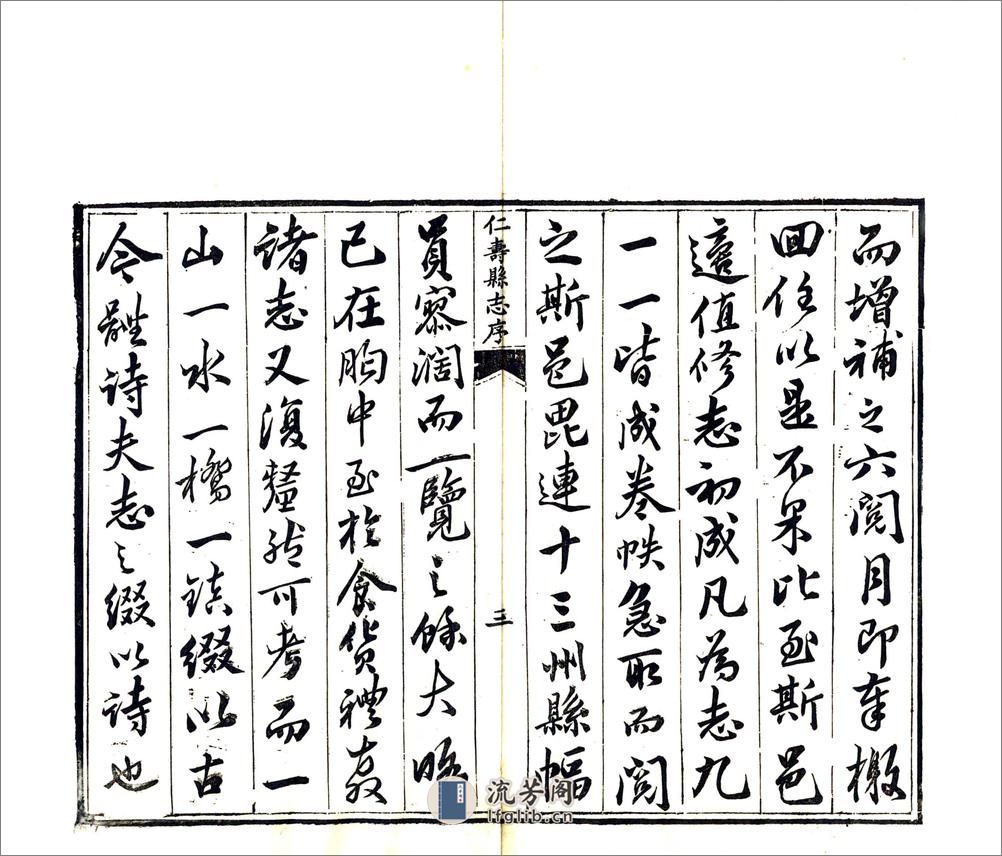 而增補之六閱月即奉檄
回任以是不果比至斯邑
適值修志初成凡為志九
一一皆成卷帙急取而閱
之斯邑毘連十三州縣幅
仁壽縣志序
三
員寥濶而一覽之餘大略
已在胸中至於食貨禮教
諸志又復釐然可考而一
山一水一橋一鎮綴以古
今體詩夫志之綴以詩也
流芳阁
lfglib.cn